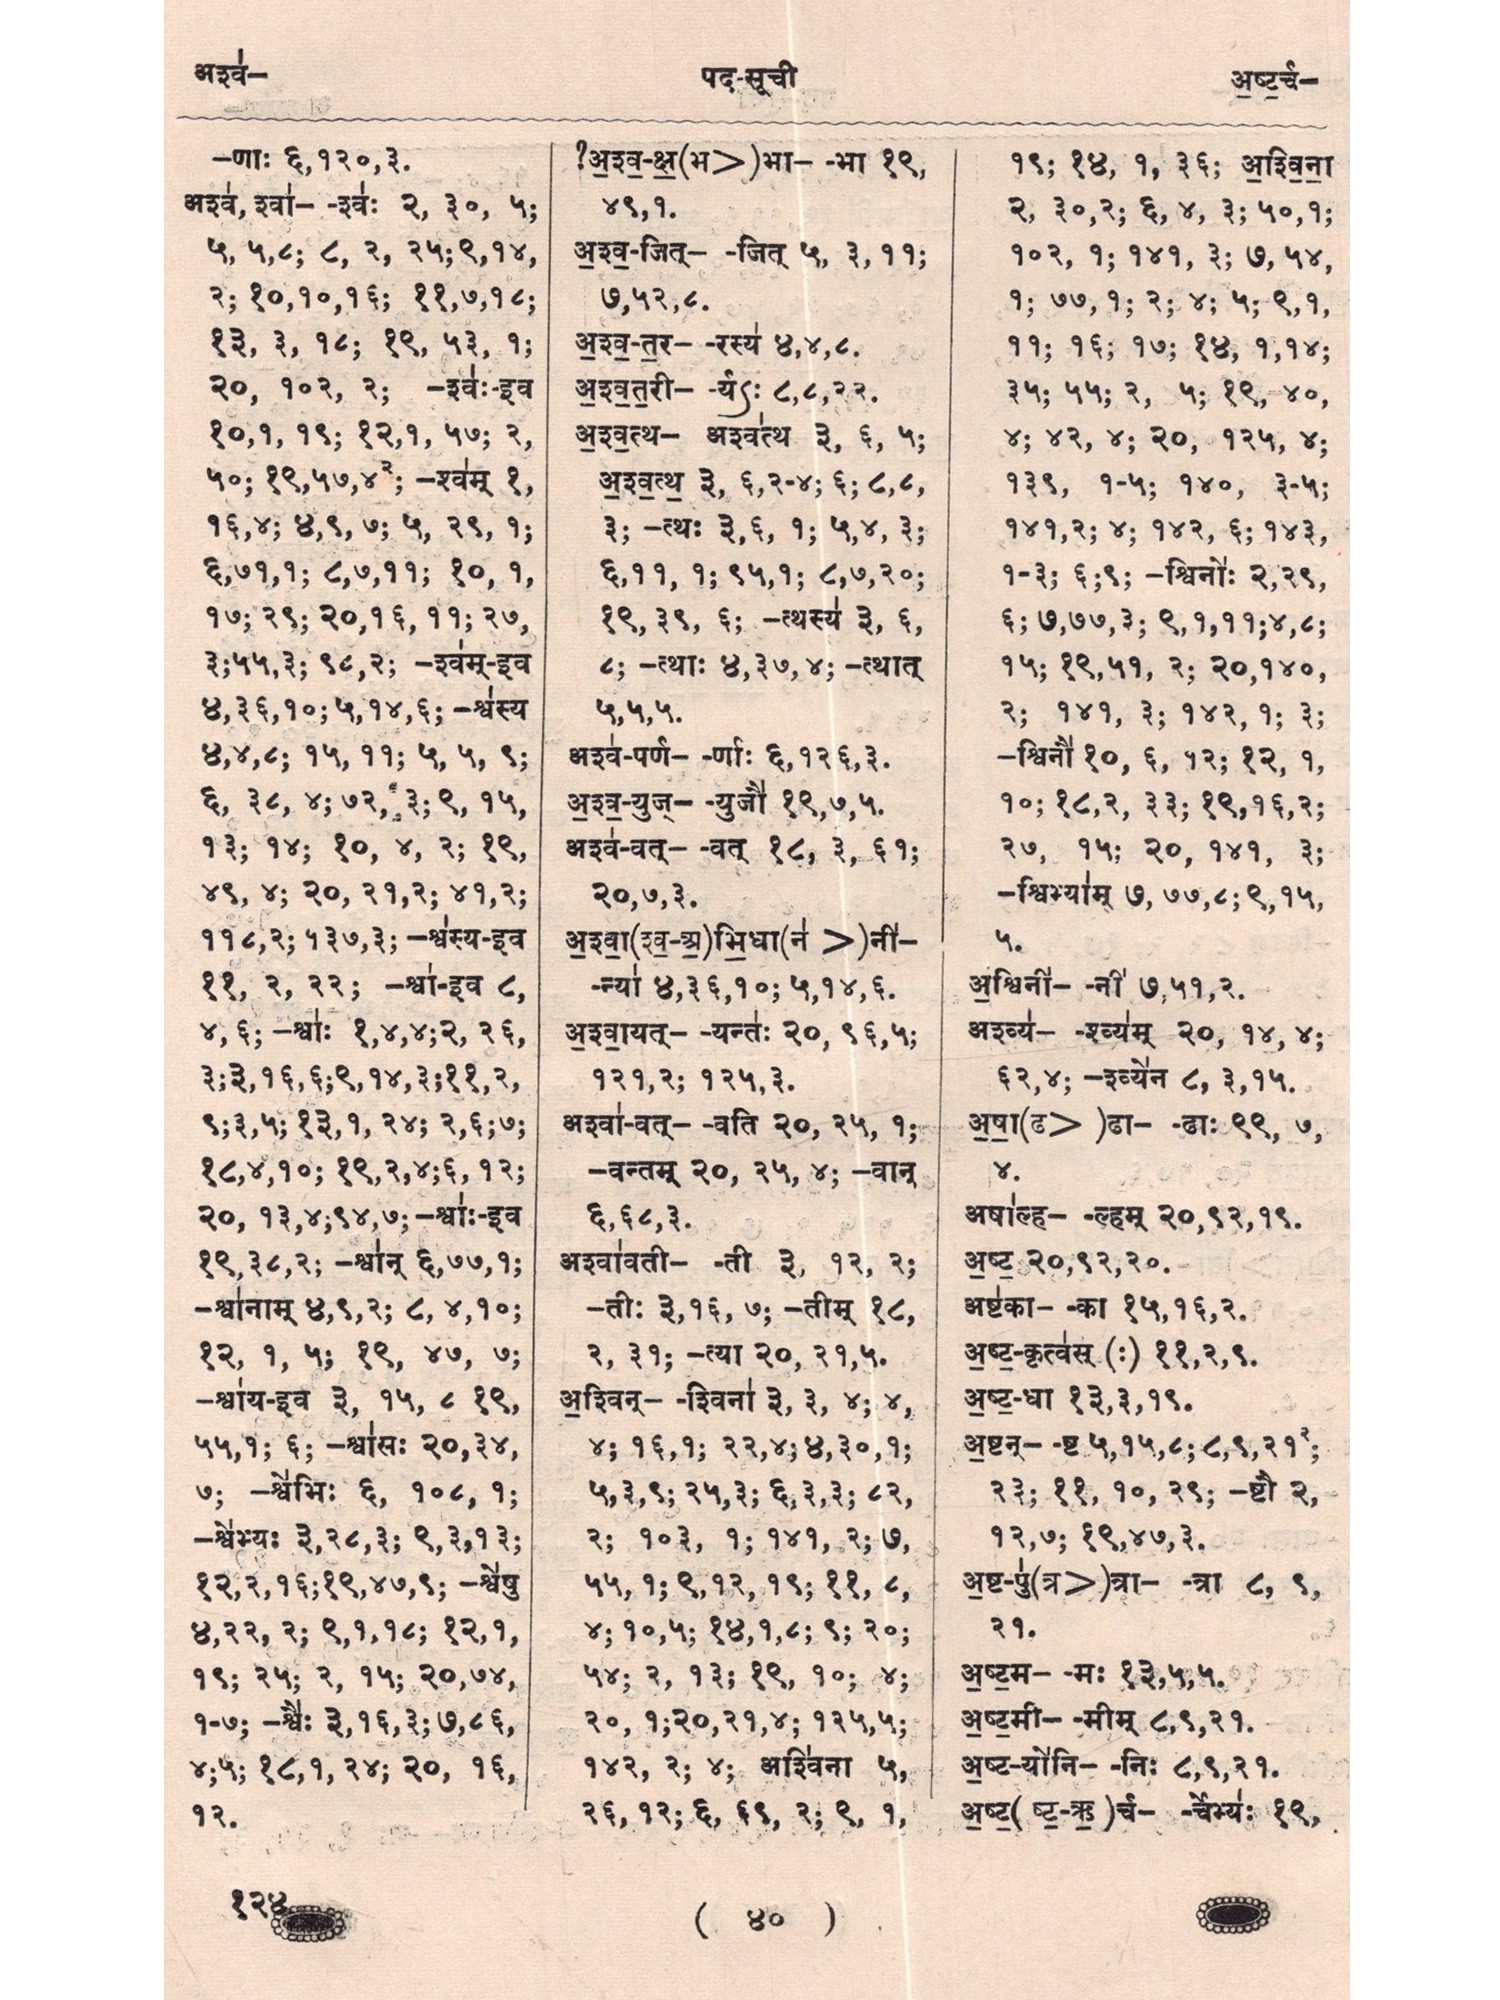 अश्व॑–
पद-सूची
अ॒ष्ट॒र्च–
–णाः ६,१२०,३.
अश्व॑, श्वा॑– -श्वः॑ २, ३०, ५;
५, ५,८; ८, २, २५;९,१४,
२; १०,१०,१६; ११,७,१८;
१३, ३, १८; १९, ५३, १;
२०, १०२, २; –श्वः॑-इव
१०,१, १९; १२,१, ५७; २,
५०; १९,५७,४²; –श्व॑म् १,
१६,४; ४,९, ७; ५, २९, १;
६,७१,१; ८,७,११; १०, १,
१७; २९; २०,१६, ११; २७,
३;५५,३; ९८,२; –श्व॑म्-इव
४,३६,१०;५,१४,६; –श्व॑स्य
४,४,८; १५, ११; ५, ५, ९;
६, ३८, ४; ७२, ३; ९, १५,
१३; १४; १०, ४, २; १९,
४९, ४; २०, २१,२; ४१,२;
११८,२; १३७,३; –श्व॑स्य-इव
११, २, २२; –श्वा॑-इव ८,
४, ६; –श्वाः॑ १,४,४;२, २६,
३;३,१६,६;९,१४,३;११,२,
९;३,५; १३,१, २४; २,६;७;
१८,४,१०; १९,२,४;६, १२;
२०, १३,४;९४,७; –श्वाः॑-इव
१९,३८,२; –श्वा॑न् ६,७७,१;
–श्वा॑नाम् ४,९,२; ८, ४,१०;
१२, १, ५; १९, ४७, ७;
–श्वा॑य-इव ३, १५, ८ १९,
५५,१; ६; –श्वा॑सः २०,३४,
७; –श्वे॑भिः ६, १०८, १;
–श्वे॑भ्यः ३,२८,३; ९,३,१३;
१२,२,१६;१९,४७,९; –श्वे॑षु
४,२२, २; ९,१,१८; १२,१,
१९; २५; २, १५; २०,७४,
१-७; –श्वैः॑ ३,१६,३; ७,८६,
४;५; १८,१, २४; २०, १६,
१२.
?अ॒श्व॒-क्ष॒(भ>)भा– -भा १९,
४९,१.
अ॒श्व॒-जित्– -जित् ५, ३, ११;
७,५२,८.
अ॒श्व॒-त॒र– -रस्य॑ ४,४,८.
अ॒श्व॒त॒री– -र्यऽः ८,८,२२.
अ॒श्व॒त्थ– अश्व॑त्थ ३, ६, ५;
अ॒श्व॒त्थ॒ ३, ६,२-४; ६; ८,८,
३; –त्थः ३,६, १; ५,४, ३;
६,११, १; ९५,१; ८,७,२०;
१९, ३९, ६; –त्थस्य॑ ३, ६,
८; –त्थाः ४,३७,४; –त्थात्
५,५,५.
अश्व॑-पर्ण– -र्णाः ६,१२६,३.
अ॒श्व॒-युज्– -युजौ॑ १९,७,५.
अश्व॑-वत्– -वत् १८, ३, ६१;
२०,७,३.
अ॒श्वा॒(श्व॒-अ॒)भि॒धा(न॑ >)नी॑–
-न्या॑ ४,३६,१०; ५,१४,६.
अ॒श्वा॒यत्– -यन्तः॑ २०, ९६,५;
१२१,२; १२५,३.
अश्वा॑-वत्– -वति २०, २५, १;
–वन्तम् २०, २५, ४; –वान्
६,६८,३.
अश्वा॑वती– -ती ३, १२, २;
–तीः ३,१६, ७; –तीम् १८,
२, ३१; –त्या २०, २१,५.
अ॒श्विन्– -श्विना॑ ३, ३, ४; ४,
४; १६,१; २२,४; ४,३०,१;
५,३,९; २५,३; ६,३,३; ८२,
२; १०३, १; १४१, २; ७,
५५, १; ९,१२, १९; ११, ८,
४; १०,५; १४,१,८; ९; २०;
५४; २, १३; १९, १०; ४;
२०, १;२०,२१,४; १२५,५;
१४२, २; ४; अश्वि॑ना ५,
२६, १२; ६, ६९, २; ९, १,
१९; १४, १, ३६; अ॒श्वि॒ना॒
२, ३०,२; ६, ४, ३; ५०,१;
१०२, १; १४१, ३; ७, ५४,
१; ७७, १; २; ४; ५; ९,१,
११; १६; १७; १४, १,१४;
३५; ५५; २, ५; १९, ४०,
४; ४२, ४; २०, १२५, ४;
१३९, १-५; १४०, ३-५;
१४१,२; ४; १४२, ६; १४३,
१-३; ६;९; –श्विनोः॑ २,२९,
६; ७,७७,३; ९,१,११;४,८;
१५; १९,५१, २; २०,१४०,
२; १४१, ३; १४२, १; ३;
–श्विनौ॑ १०, ६, १२; १२, १,
१०; १८,२, ३३; १९,१६,२;
२७, १५; २०, १४१, ३;
–श्विभ्या॑म् ७, ७७,८; ९,१५,
५.
अ॒श्विनी॑– -नी॑ ७,५१,२.
अश्व्य॑– -श्व्य॑म् २०, १४, ४;
६२,४; –श्व्ये॑न ८, ३,१५.
अ॒षा॒(ढ> )ढा– -ढाः १९, ७,
४.
अषा॑ल्ह– -ल्हम् २०,९२,१९.
अ॒ष्ट॒ २०,९२,२०.
अष्ट॑का– -का १५,१६,२.
अ॒ष्ट॒-कृत्व॑स् (ः) ११,२,९.
अ॒ष्ट॒-धा १३,३,१९.
अ॒ष्टन्– -ष्ट ५,१५,८; ८,९,२१²;
२३; ११, १०, २९; –ष्टौ २,
१२,७; १९,४७,३.
अ॒ष्ट-पु॑(त्र>)त्रा– -त्रा ८, ९,
२१.
अ॒ष्ट॒म– -मः १३,५,५.
अ॒ष्ट॒मी– -मीम् ८,९,२१.
अ॒ष्ट-यो॑नि– -निः ८,९,२१.
अ॒ष्ट॒( ष्ट॒-ऋ॒ )र्च– -र्चेभ्यः॑ १९,
१२४
( ४० )